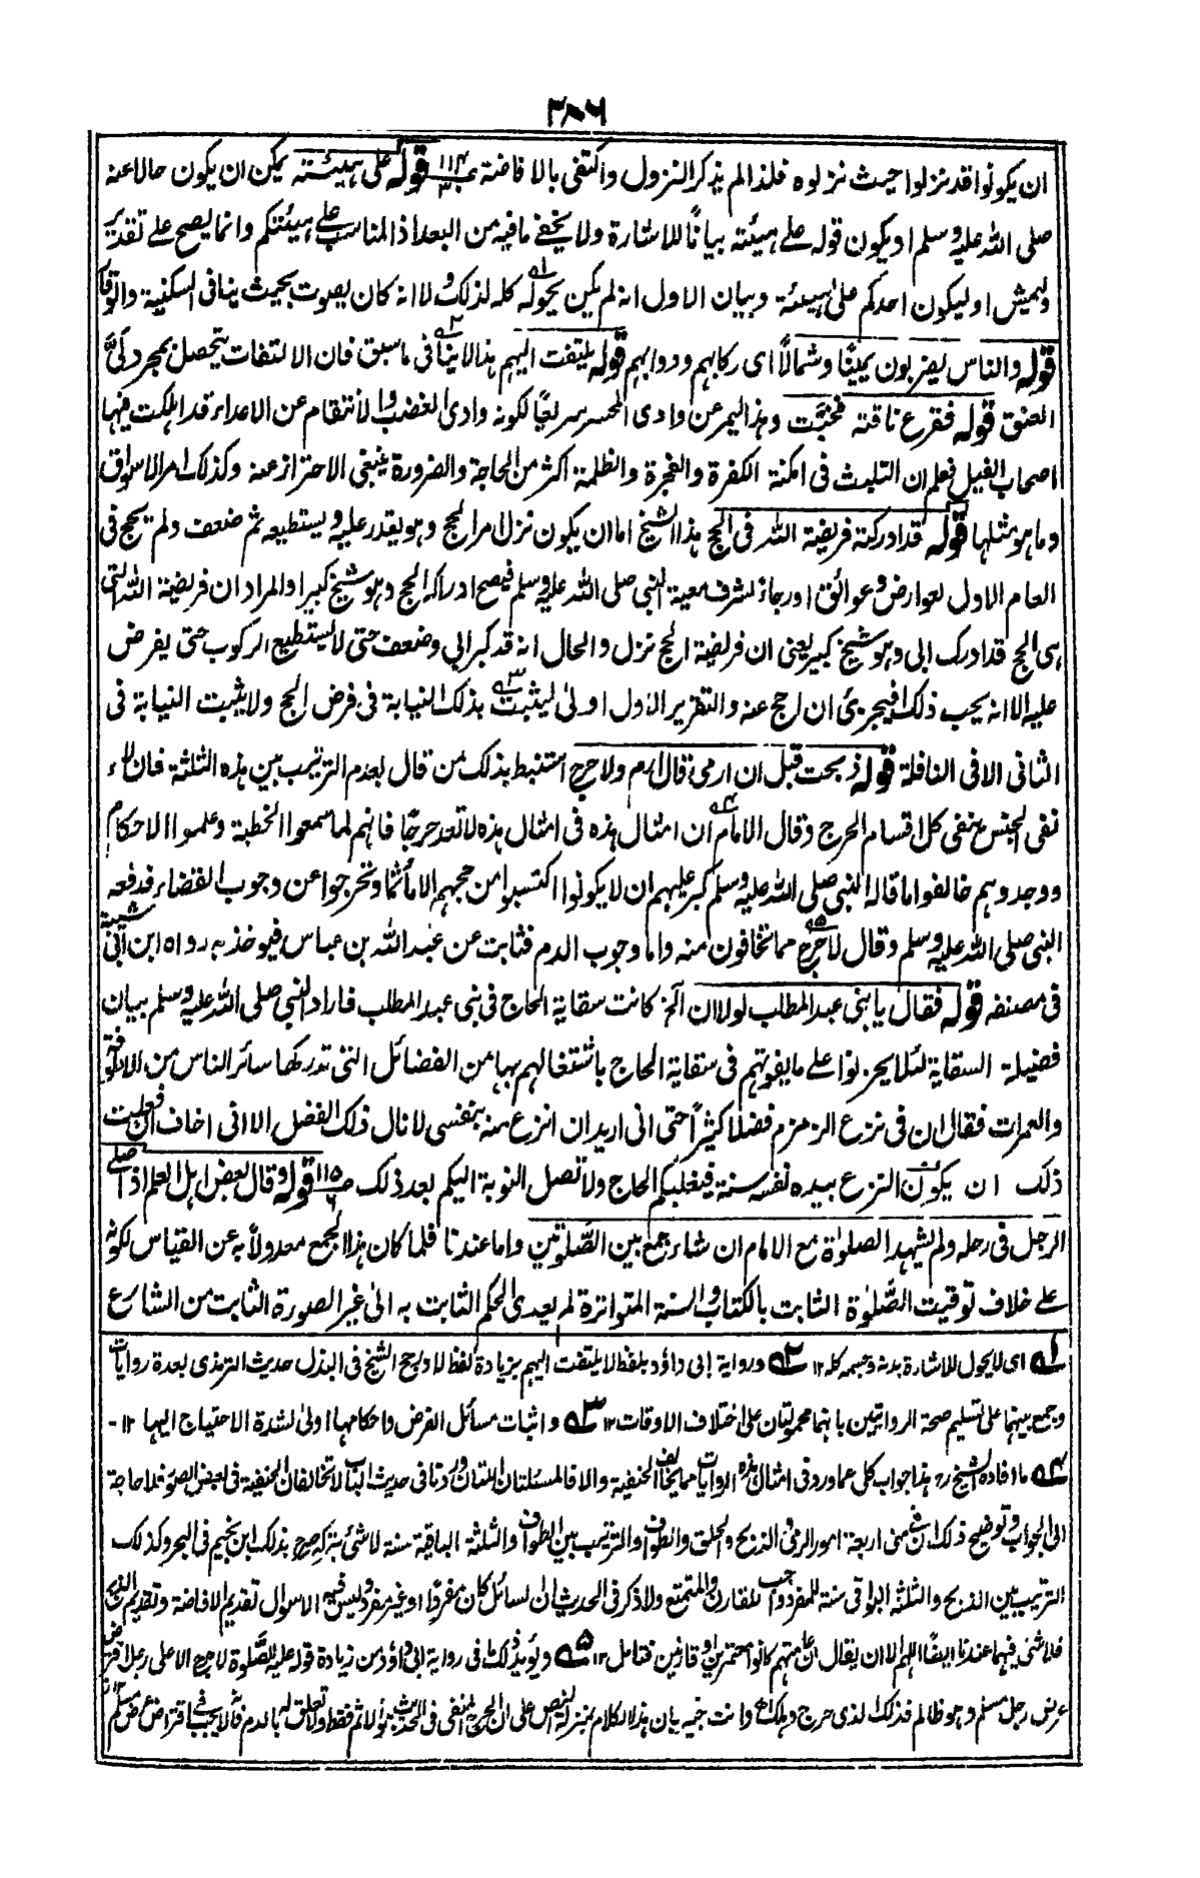 ٢٨٦
ان يكونوا قد نزلوا حيث نزلوه فلذا لم يذكر النزول واكتفى بالافاضة ١١٢ قوله على هيئته يمكن ان يكون حالا عنه
صلى الله عليه وسلم او يكون قوله على هيئته بيانًا للاشارة ولا يخفى ما فيه من البعد اذ المناسب على هيئتكم وانما يصح على تقدير
وليمش او ليكون احدكم على هيئة وبيان الاول انه لم يكن يحوله كله لذلك ولا انه كان يصوت بحيث ينافى السكنية والوقار
قوله والناس يضربون يمينًا وشمالًا اى ركابهم ودوابهم قوله يلتفت اليهم هذا لا ينافى ما سبق فان الالتفات يتحصل بمجرد لىّ
العنق قوله فقرع ناقته فخبّت وهذا ليمر عن وادى المحسر سريعًا لكونه وادى الغضب والانتقام عن الاعداء قد اهلكت فيها
اصحاب الفيل فعلم ان التلبث فى امكنة الكفرة والفجرة والظلمة اكثر من الحاجة والضرورة ينبغى الاحتراز عنه وكذلك امر الاسواق
وما هو مثلها قوله قد ادركته فريضة الله فى الحج هذا الشيخ اما ان يكون نزل امر الحج وهو يقدر عليه ويستطيعه ثم ضعف ولم يحج فى
العام الاول لعوارض وعوائق او رجاءً لشرف معية النبى صلى الله عليه وسلم فيصح ادراكه الحج وهو شيخ كبير او المراد ان فريضة الله التى
هى الحج قد ادرك ابى وهو شيخ كبير يعنى ان فريضة الحج نزل والحال انه قد كبر ابى وضعف حتى لا يستطيع الركوب حتى يفرض
عليه الا انه يحب ذلك افيجزئ ان احج عنه والتقرير الاول اولىٰ ليثبت بذلك النيابة فى فرض الحج ولا يثبت النيابة فى
الثانى الا فى النافلة قوله ذبحت قبل ان ارمى قال ارم ولا حرج استنبط بذلك من قال بعدم الترتيب بين هذه الثلثة فان لاء
نفى الجنس ينفى كل اقسام الحرج وقال الامام ان امثال هذه فى امثال هذه لا تعد حرجًا فانهم لما سمعوا الخطبة وعلموا الاحكام
ووجدوهم خالفوا ما قاله النبى صلى الله عليه وسلم كبر عليهم ان لا يكونوا اكتسبوا من حجهم الا مأثما وتحرجوا عن وجوب القضاء فدفعه
النبى صلى الله عليه وسلم وقال لا حرج مما تخافون منه واما وجوب الدم فثابت عن عبد الله بن عباس فيوخذ به رواه ابن ابى شيبة
فى مصنفه قوله فقال يا بنى عبد المطلب لولا ان الخ كانت سقاية الحاج فى بنى عبد المطلب فاراد النبى صلى الله عليه وسلم بيان
فضيلة السقاية لئلا يحزنوا على ما يفوتهم فى سقاية الحاج باشتغالهم بها من الفضائل التى تدركها سائر الناس من الاطوفة
والعمرات فقال ان فى نزع الزمزم فضلا كثيرًا حتى انى اريد ان انزع منه بنفسى لانال ذلك الفضل الا انى اخاف ان فعلت
ذلك ان يكون النزع بيده نفسه سنة فيغلبكم الحاج ولا تصل النوبة اليكم بعد ذلك ١١٥ قوله وقال بعض اهل العلم اذا صلى
الرجل فى رحله ولم يشهد الصلوٰة مع الامام ان شاء جمع بين الصلوتين واما عندنا فلما كان هذا الجمع معدولًا به عن القياس لكونه
على خلاف توقيت الصلوٰة الثابت بالكتاب والسنة المتواترة لم يعدى الحكم الثابت به الىٰ غير الصورة الثابت من الشارع
١ه اى لا يحول للاشارة بدنه وجسمه كله ١٢ ٢ه ورواية ابى داؤد بلفظ لا يلتفت اليهم بزيادة لفظ لا ورجح الشيخ فى البذل حديث الترمذى بعدة روايات
وجمع بينهما على تسليم صحة الروايتين بانهما محمولتان على اختلاف الاوقات ١٢ ٣ه واثبات مسائل الفرض واحكامها اولىٰ لشدة الاحتياج اليها ١٢-
٤ه ما افاده الشيخ رہ هذا جواب كل عما ورد فى امثال هذه الروايات مما يخالف الحنفية والا فالمسئلتان اللتان وردتا فى حديث الباب لا تخالفان الحنفية فى بعض الصور فلا حاجة
الى الجواب وتوضيح ذلك ان فى منى اربعة امور الرمى والذبح والحلق والطواف والترتيب بين الطواف والثلثة الباقية سنة لا شئ بتركه صرح بذلك ابن نجيم فى البحر وكذلك
الترتيب بين الذبح والثلثة البواقى سنة للمفرد واجب للقارن والمتمتع ولا ذكر فى الحديث ان السائل كان مفردًا او غير مفرد وليس فيه الا سوال تقديم الافاضة وتقديم الذبح
فلا شئ فيهما عندنا ايضًا اللهم الا ان يقال ان علم منهم كانوا معتمرين او قارنين فتامل ١٢ ٥ه ويؤيد ذلك فى رواية ابى داؤد من زيادة قوله عليه الصلوة لا حرج الا على رجل اقترض
عرض رجل مسلم وهو ظالم فذلك الذى حرج وهلك اھ وانت خبير بان هذا الكلام بمنزلة النص على ان الحرج المنفى فى الحديث هو الاثم فقط ولا تعلق له بالدم فانه لا يجب فى اقتراض عرض مسلم ١٢